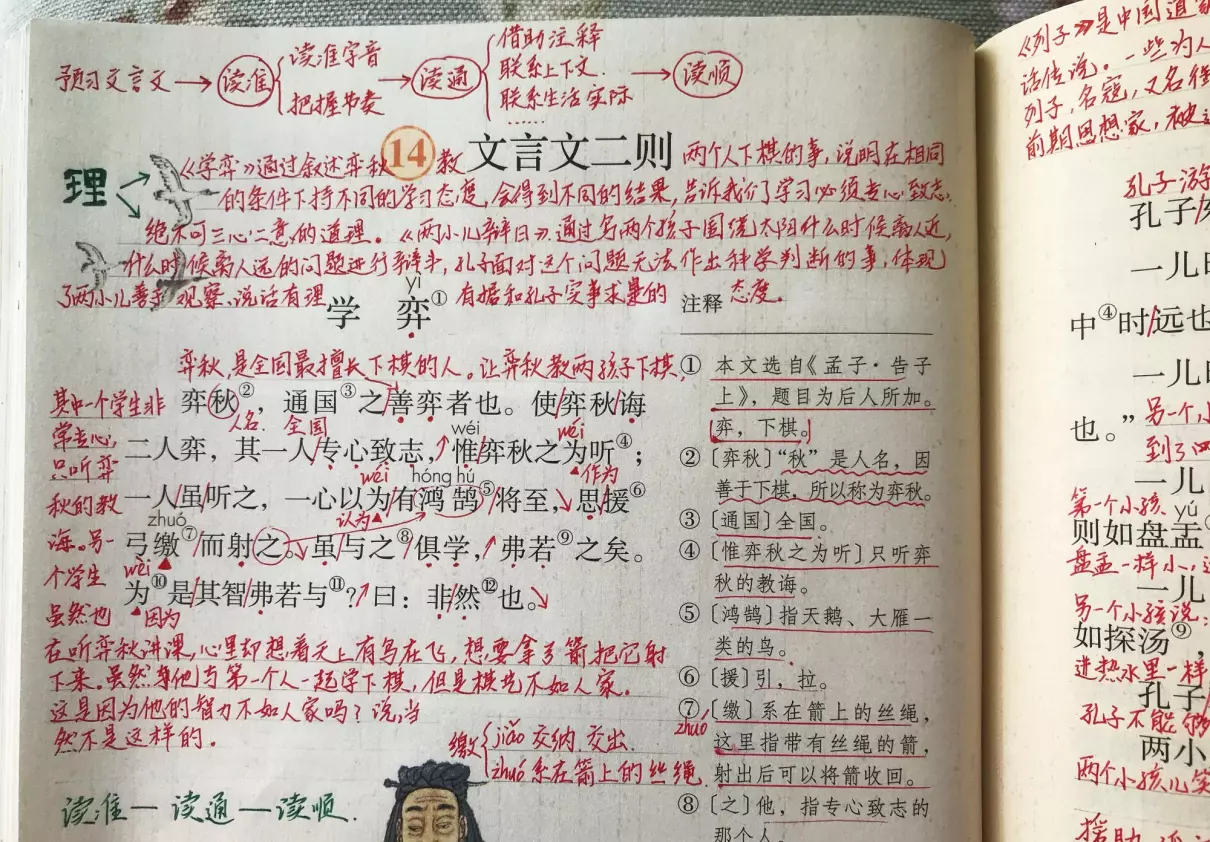 预习文言文→读准{读准字音 把握节奏→读通{借助注释 联系上下文 联系生活实际……→读顺
14 文言文二则
理
《学弈》通过叙述弈秋教两个人下棋的事,说明在相同
的条件下持不同的学习态度,会得到不同的结果,告诉我们学习必须专心致志,
绝不可三心二意的道理。《两小儿辩日》通过写两个孩子围绕太阳什么时候离人近,
什么时候离人远的问题进行辩斗,孔子面对这个问题无法作出科学判断的事,体现
了两小儿善于观察、说话有理有据和孔子实事求是的态度。
yì
学 弈①
弈秋,是全国最擅长下棋的人。让弈秋教两孩子下棋,
其中一个学生非
常专心,
只听弈
秋的教
诲。另一
个学生
虽然也
在听弈秋讲课,心里却想着天上有鸟在飞,想要拿弓箭把它射
下来。虽然他与第一个人一起学下棋,但是棋艺不如人家。
这是因为他的智力不如人家吗?说,当
然不是这样的。
弈秋②,通国③之善弈者也。使弈秋诲
人名 全国
wéi wéi
二人弈,其一人专心致志,惟弈秋之为听④;
作为
wéi hóng hú
一人虽听之,一心以为有鸿鹄⑤将至,思援⑥
认为
zhuó
弓缴⑦而射之。虽与之⑧俱学,弗若⑨之矣。
wèi
为⑩是其智弗若与⑪?曰:非然⑫也。
因为
缴{jiǎo 交纳 交出
zhuó 系在箭上的丝绳
读准—读通—读顺.
注释
① 本文选自《孟子·告子
上》,题目为后人所加。
弈,下棋。
② 〔弈秋〕“秋”是人名,因
善于下棋,所以称为弈秋。
③ 〔通国〕全国。
④ 〔惟弈秋之为听〕只听弈
秋的教诲。
⑤ 〔鸿鹄〕指天鹅、大雁一
类的鸟。
⑥ 〔援〕引,拉。
⑦ 〔缴〕系在箭上的丝绳,
zhuó
这里指带有丝绳的箭,
射出后可以将箭收回。
⑧ 〔之〕他,指专心致志的
那个人。
《列子》是中国道家
话传说。一些为人
列子,名寇,又名御
前期思想家,被
孔子游
孔子
一儿
中④时远也
一儿
也。”
另一个小
到了
一儿
第一个小孩
yú
则如盘盂
盘盂一样小,
一儿
另一个小孩说:
如探汤⑨,
进热水里一样
孔子
孔子不能够
两小
两个小孩儿笑
援助